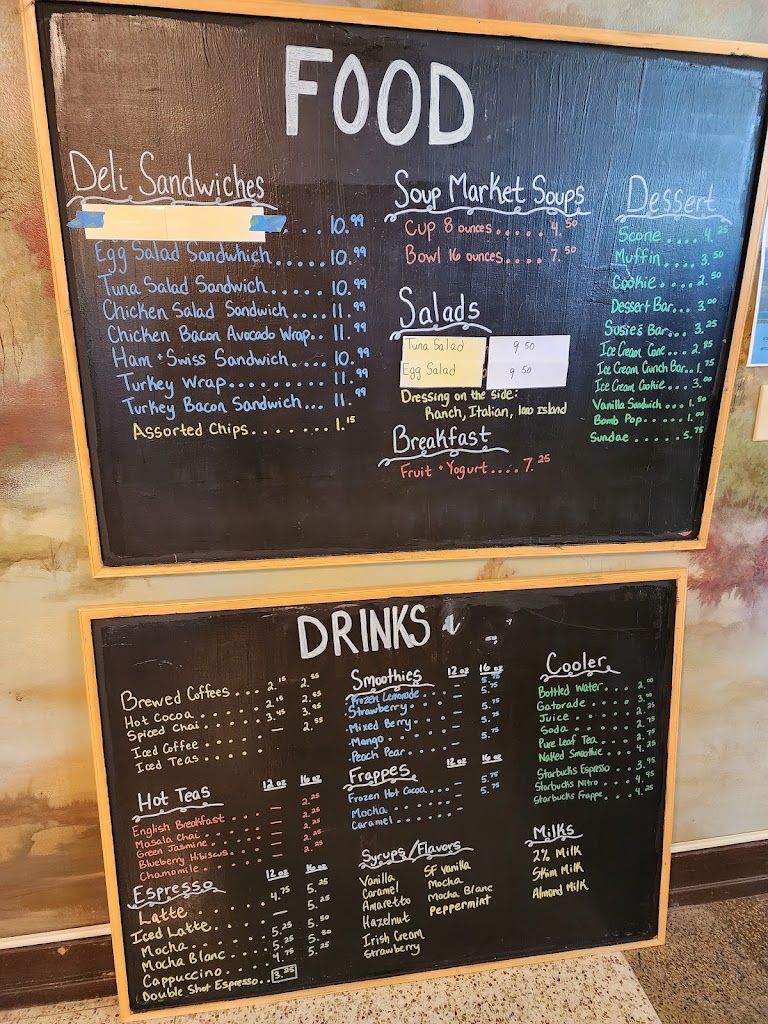 FOOD
Deli Sandwiches
. . . 10.99
Egg Salad Sandwhich..... 10.99
Tuna Salad Sandwich..... 10.99
Chicken Salad Sandwich.... 11.99
Chicken Bacon Avocado Wrap.. 11.99
Ham + Swiss Sandwich..... 10.99
Turkey Wrap......... 11.99
Turkey Bacon Sandwich... 11.99
Assorted Chips....... 1.15
Soup Market Soups
Cup 8 ounces..... 4.50
Bowl 16 ounces.... 7.50
Salads
Tuna Salad 9 50
Egg Salad 9 50
Dressing on the side:
Ranch, Italian, 1000 Island
Breakfast
Fruit + Yogurt.... 7.25
Dessert
Scone.... 4.25
Muffin.... 3.50
Cookie.... 2.50
Dessert Bar... 3.00
Susie's Bar... 3.25
Ice Cream Cone... 2.85
Ice Cream Crunch Bar.. 1.75
Ice Cream Cookie... 3.00
Vanilla Sandwich... 1.50
Bomb Pop..... 1.00
Sundae...... 5.75
DRINKS
Brewed Coffees... 2.15 2.55
Hot Cocoa
Spiced Chai
Iced Coffee
Iced Teas
Hot Teas 12 oz 16 oz
English Breakfast — 2.25
Masala Chai — 2.25
Green Jasmine — 2.25
Blueberry Hibiscus — 2.25
Chamomile
Espresso 12 oz 16 oz
Latte 4.75 5.25
Iced Latte — 5.25
Mocha 5.25 5.50
Mocha Blanc 5.25 5.50
Cappuccino 4.75 5.25
Double Shot Espresso.. 3.25
Smoothies 12 oz 16 oz
Frozen Lemonade — 5.75
Strawberry — 5.75
Mixed Berry — 5.75
Mango — 5.75
Peach Pear — 5.75
Frappes 12 oz 16 oz
Frozen Hot Cocoa — 5.75
Mocha — 5.75
Caramel
Syrups/Flavors
Vanilla
Caramel
Amaretto
Hazelnut
Irish Cream
Strawberry
SF Vanilla
Mocha
Mocha Blanc
Peppermint
Cooler
Bottled Water... 2.00
Gatorade 3.00
Juice
Soda
Pure Leaf Tea 2.75
Naked Smoothie 4.25
Starbucks Espresso 3.95
Starbucks Nitro 4.95
Starbucks Frappe 4.25
Milks
2% Milk
Skim Milk
Almond Milk